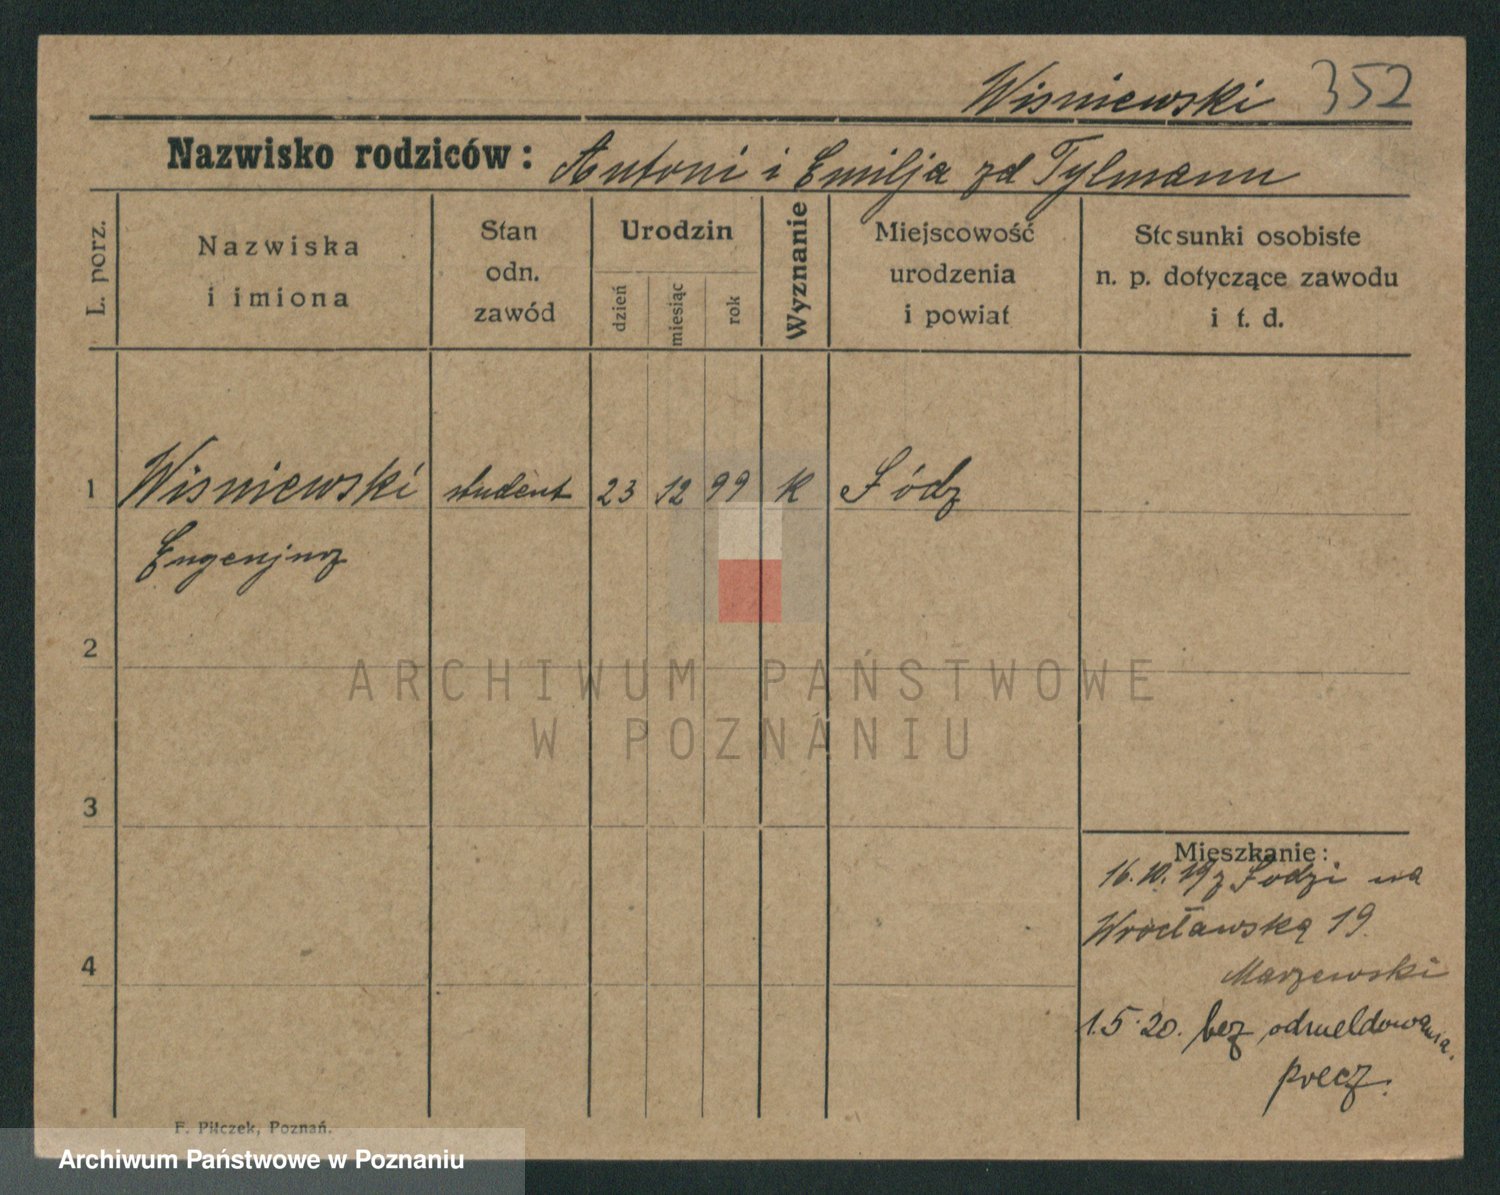 Wisniewski 352
Nazwisko rodziców: Antoni i Emilja zd Tylmann
L. porz.
Nazwiska
i imiona
Stan
odn.
zawód
Urodzin
dzień
miesiąc
rok
Wyznanie
Miejscowość
urodzenia
i powiat
Stosunki osobiste
n. p. dotyczące zawodu
i t. d.
1 Wisniewski student 23 12 99 k Łódz
Eugenjusz
2
3
4
Mieszkanie:
16.10.19 z Łodzi na
Wrocławską 19.
Marzewski
1.5.20. bez odmeldowania.
precz.
F. Pilczek, Poznań.
ARCHIWUM PAŃSTWOWE
W POZNANIU
Archiwum Państwowe w Poznaniu